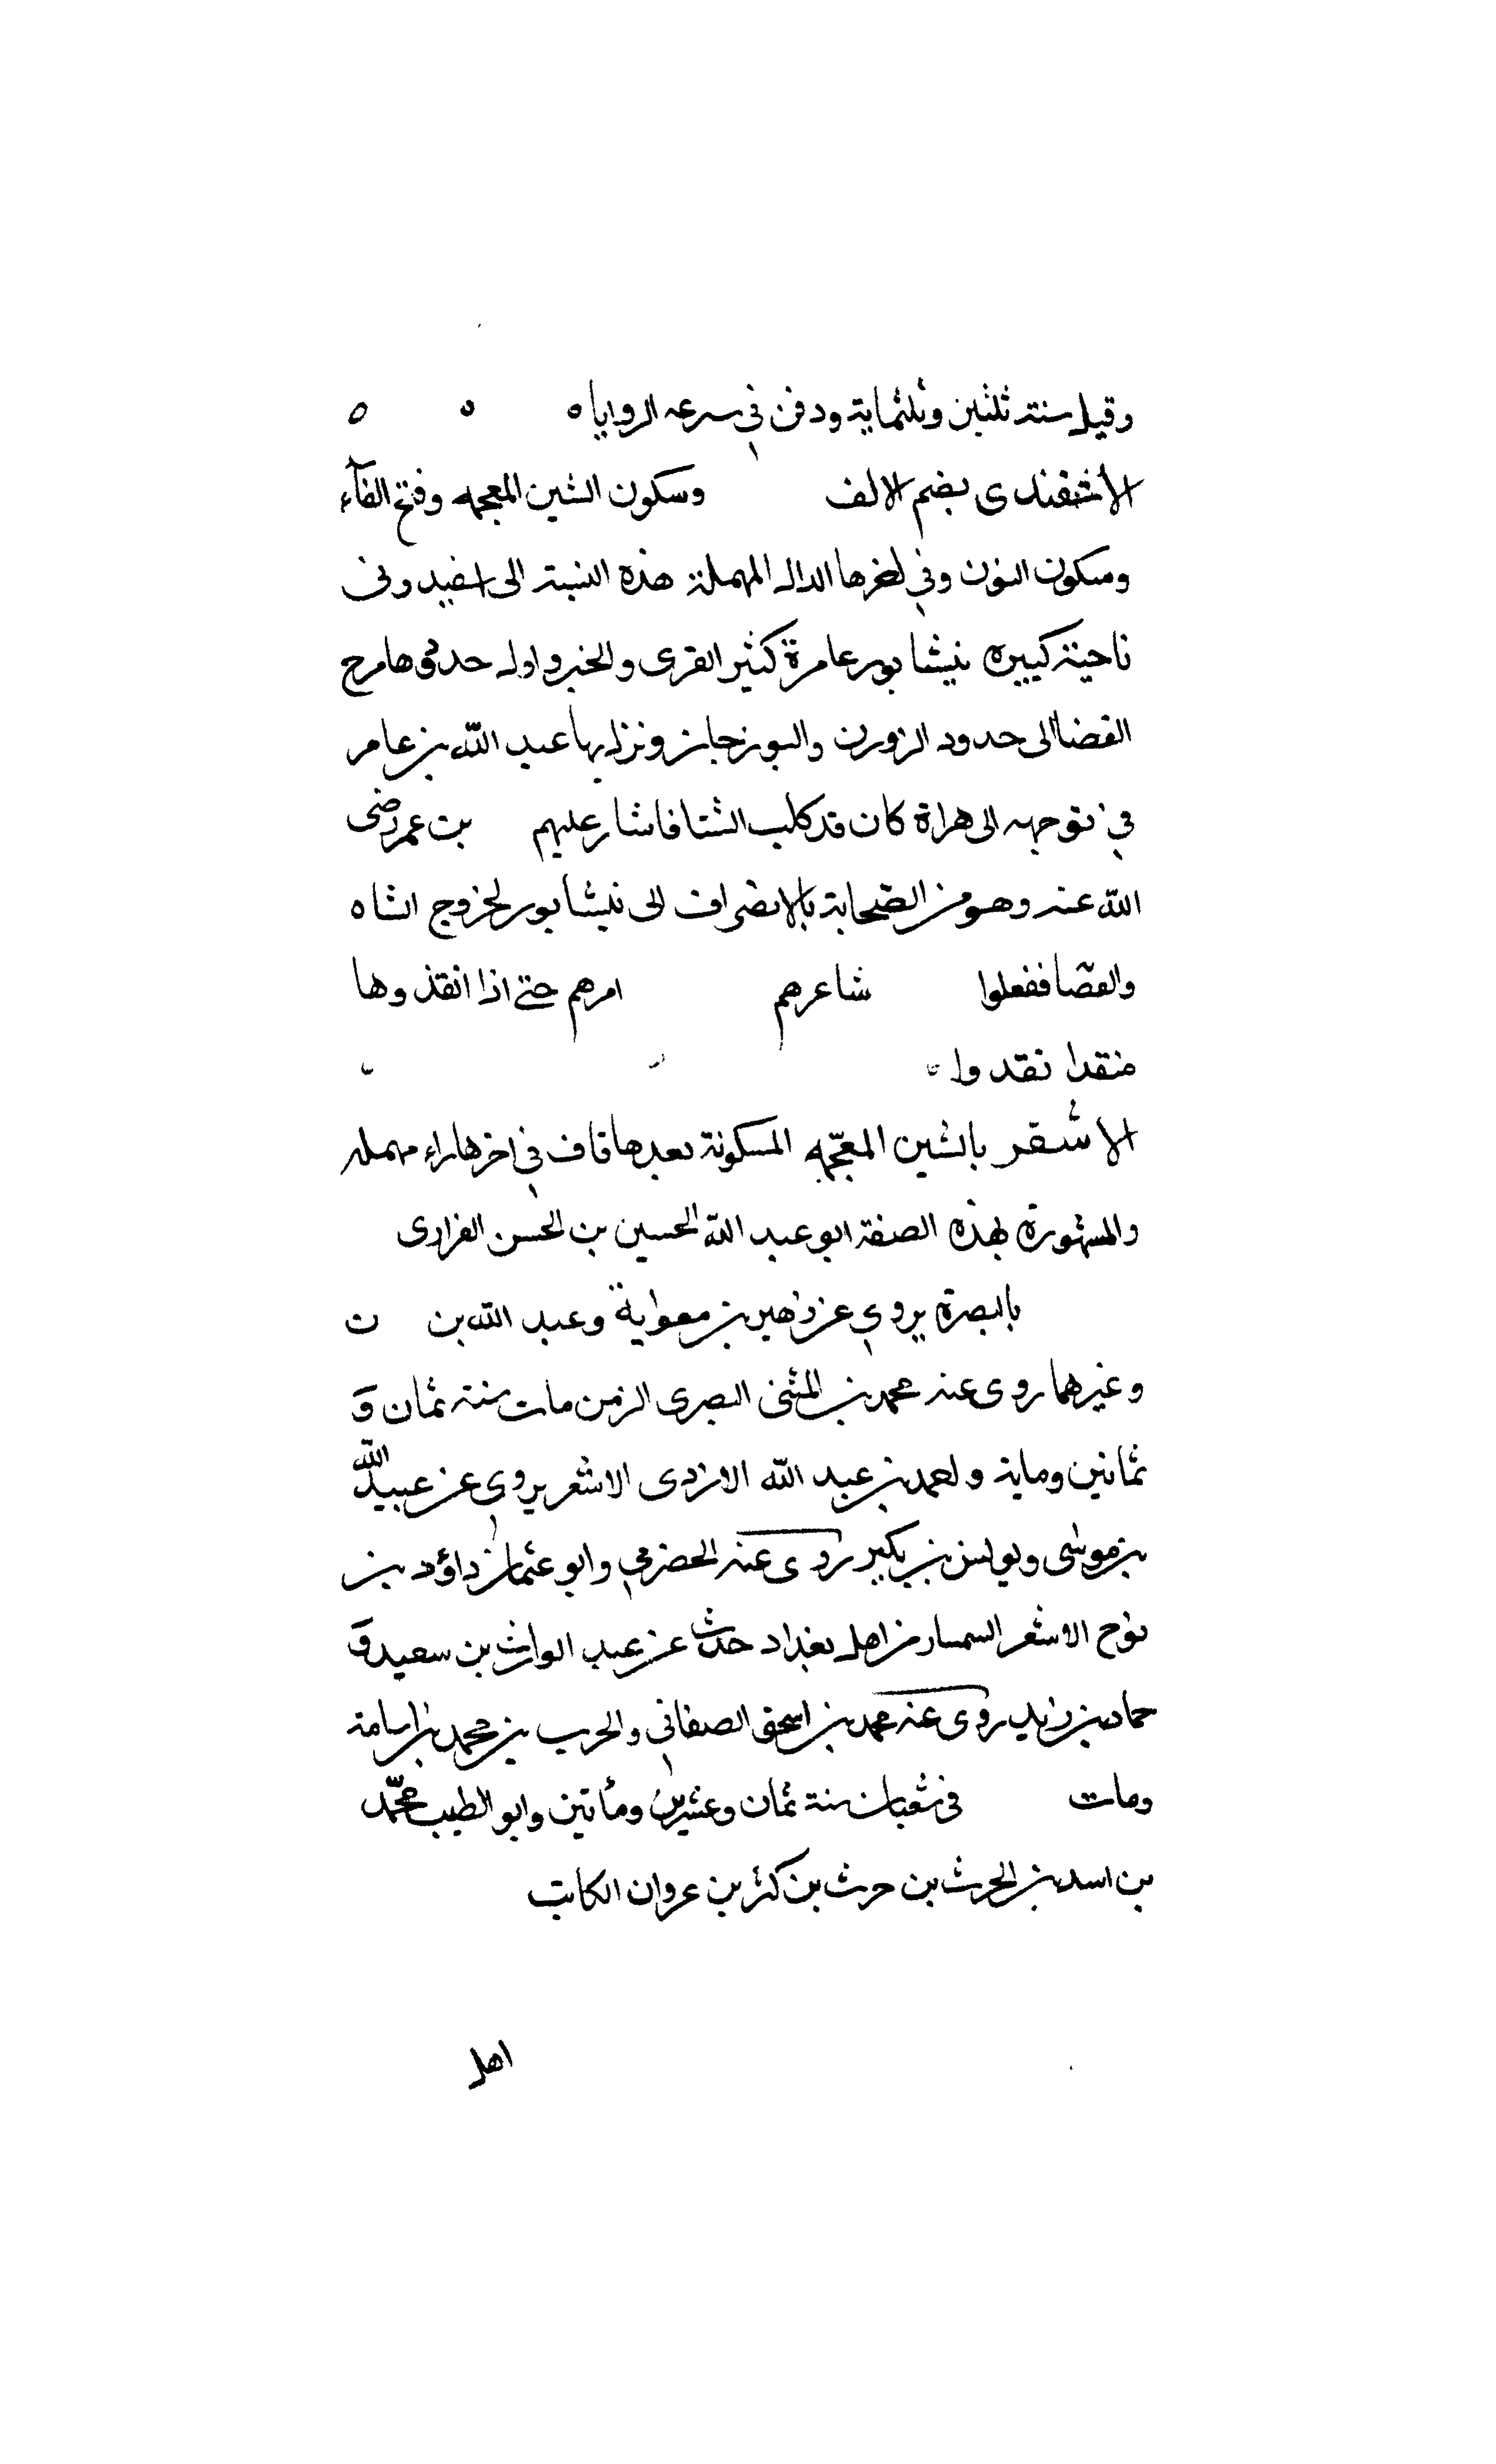 وقيل سنة ثلثين وثلثماية ودفن في سرعه الروايا ه ه ه
الأشفندى بضم الالف وسكون الشين المعجمه وفتح الفآء
وسكون النون وفي اخرها الدال المهملة هذه النسبة الى اسفيد وفى
ناحية كبيره نيشابور عامرة كثير القرى والخير واوله حدوها مرج
الفضا الى حدود الزورن والبوزجان ونزل بها عبد الله بن عامر
في توجهه الى هراة كان قد كلب الشتا فاشار عليهم بن عمر رضى
الله عنه وهو من الصحابة بالانصراف الى نيشابور لخروج الشاه
والقصا ففعلوا شاعرهم امرهم حتى اذا انقذوها
منقدا نقدوا
الاشقر بالشين المعجمه المسكونة بعدها قاف في اخرها راء مهمله
والمشهورة بهذه الصفة ابو عبد الله الحسين بن الحسن الفزارى
بالبصرة يروي عن زهير بن معواية وعبد الله بن ن
وغيرهما روى عنه محمد بن المثنى البصرى الزمن مات سنة ثمان و
ثمانين وماية واحمد بن عبد الله الازدى الاشعر يروي عن عبيد الله
بن موسى ويونس بن بكير روى عنه الحضرمي وابو عثمان داؤد بن
نوح الاشعر السمسار من اهل بغداد حدث عن عبد الوارث بن سعيد و
حماد بن زيد روى عنه محمد بن اسحق الصغاني والحرب بن محمد بن اسامة
ومات في شعبان سنة ثمان وعشرين ومأتين وابو الطيب محمد
بن اسد بن الحرث بن حرث بن كثر بن عروان الكاتب
اهل